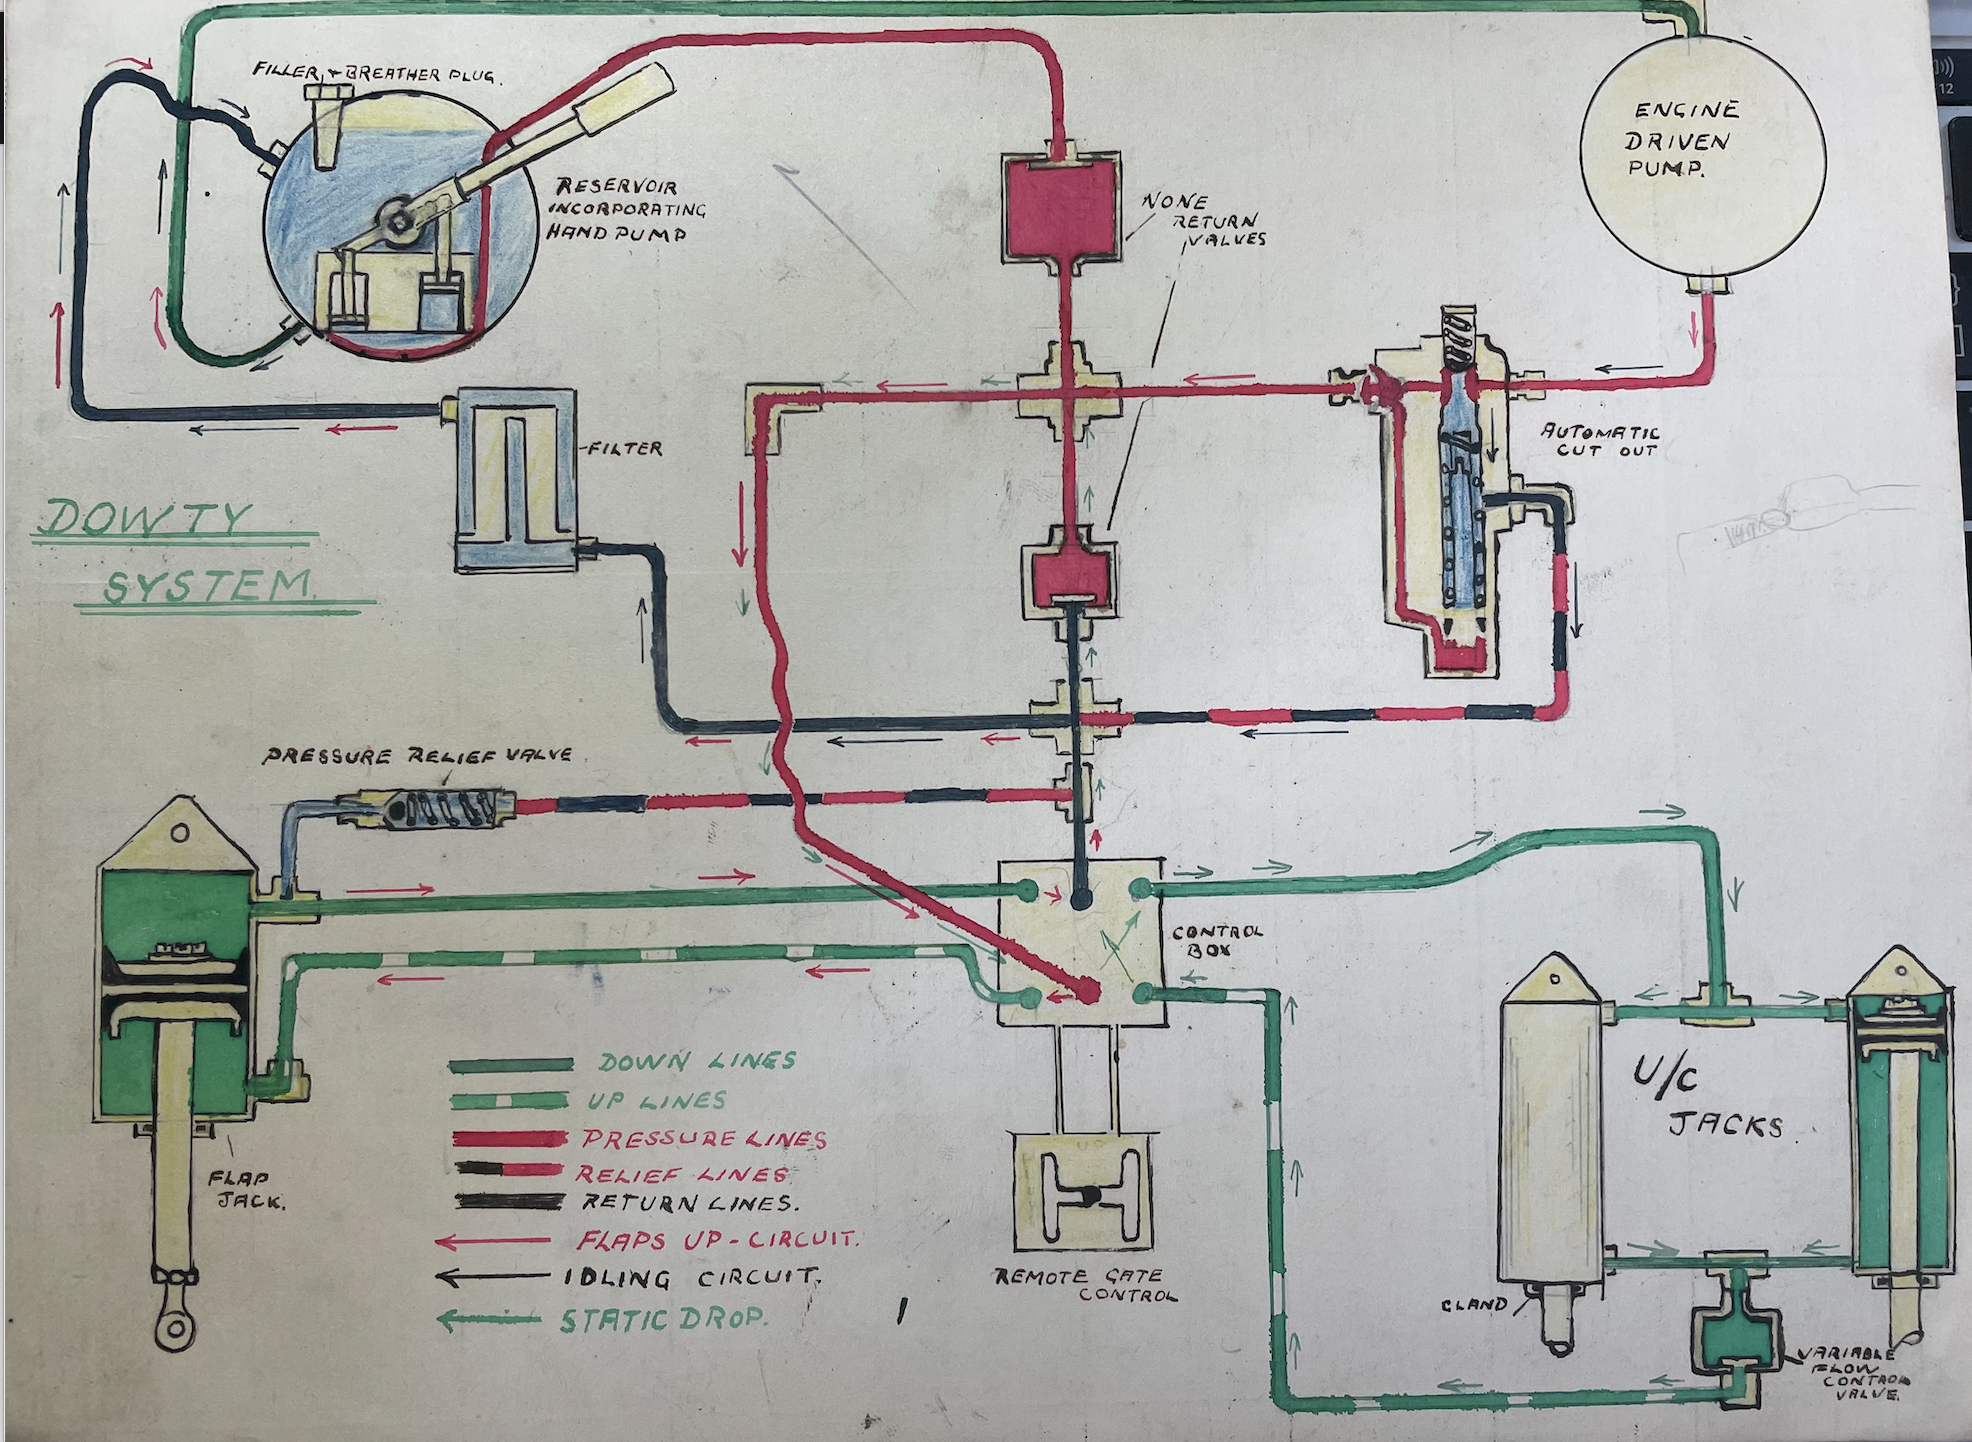 FILLER + BREATHER PLUG.
RESERVOIR
INCORPORATING
HAND PUMP
NONE
RETURN
VALVES
ENGINE
DRIVEN
PUMP.
FILTER
AUTOMATIC
CUT OUT
DOWTY
SYSTEM.
PRESSURE RELIEF VALVE
CONTROL
BOX
U/C
JACKS.
DOWN LINES
UP LINES
PRESSURE LINES
RELIEF LINES
RETURN LINES.
FLAPS UP-CIRCUIT.
IDLING CIRCUIT.
STATIC DROP.
FLAP
JACK.
UP
REMOTE GATE
CONTROL
GLAND
VARIABLE
FLOW
CONTROL
VALVE.
12